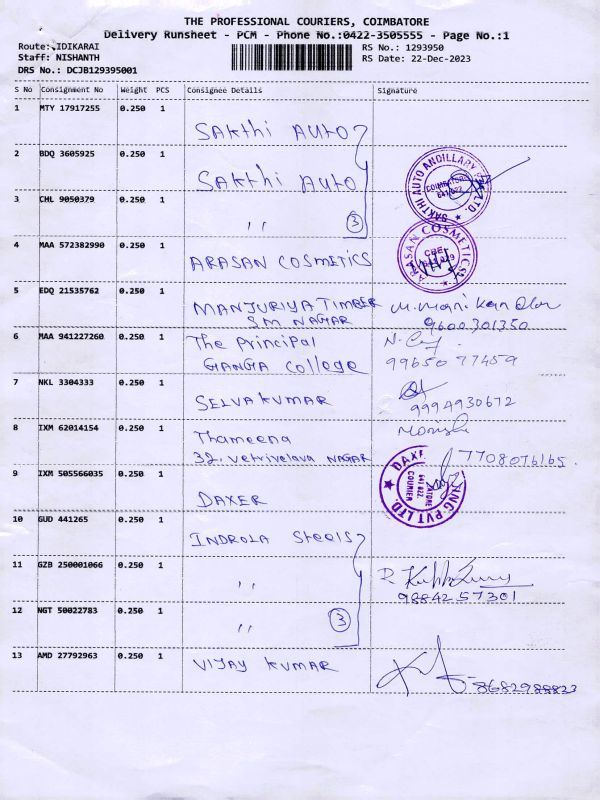 THE PROFESSIONAL COURIERS, COIMBATORE
Delivery Runsheet - PCM - Phone No.:0422-3505555 - Page No.:1
Route: IDIKARAI
RS No.: 1293950
Staff: NISHANTH
RS Date: 22-Dec-2023
DRS No.: DCJB129395001
S No Consignment No Weight PCS Consignee Details Signature
1 MTY 17917255 0.250 1
Sakthi Auto
2 BDQ 3605925 0.250 1
Sakthi Auto
SAKTHI AUTO ANCILLARY LTD.
COIMBATORE
641 022
3 CHL 9050379 0.250 1
,, 3
4 MAA 572382990 0.250 1
ARASAN COSMETICS
ARASAN COSMETICS
CBE
5 EDQ 21535762 0.250 1
MANJURIYA TIMBER M. Manikandan
SM NAGAR 9600301350
6 MAA 941227260 0.250 1
The Principal
GANGA College 9965077459
7 NKL 3304333 0.250 1
SELVAKUMAR 9994930672
8 IXM 62014154 0.250 1
Thameena
32, Vetrivelava NAGAR 7708076165.
9 IXM 505566035 0.250 1
DAXER
DAXE
ING PVT LTD.
COURIER
10 GUD 441265 0.250 1
INDROLA Steels
11 GZB 250001066 0.250 1
,,
9884257301
12 NGT 50022783 0.250 1
,, 3
13 AMD 27792963 0.250 1
VIJAY KUMAR
8682988823